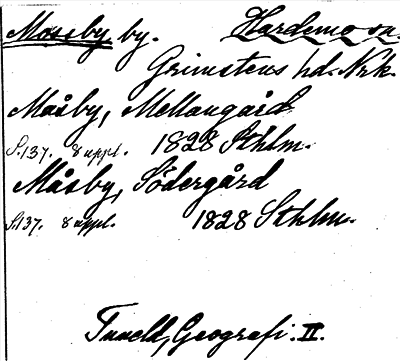 Mossby by. Hardemo sn.
Grimstens hd. Nrk.
Måsby, Mellangård
S.137. 8 uppl. 1828 Sthlm.
Måsby, Södergård
S.137. 8 uppl. 1828 Sthlm.
Tuneld, Geografi. II.